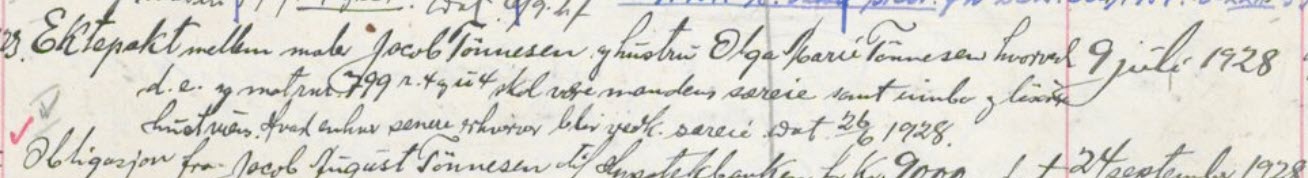 dat. 6/9.27
23. Ektepakt mellem maler Jacob Tönnesen og hustru Olga Marie Tönnesen hvorved 9 juli 1928
d. e. og matrnr 799 r. 4 og ü 4 skal være mandens særeie samt innbo og lösöre
hustruens. Hvad enhver senere erhverver blir vedk. særeie. dat 26/6 1928.
Obligasjon fra Jacob August Tönnesen til Hypotekbanken for Kr. 9000 24 september 1928